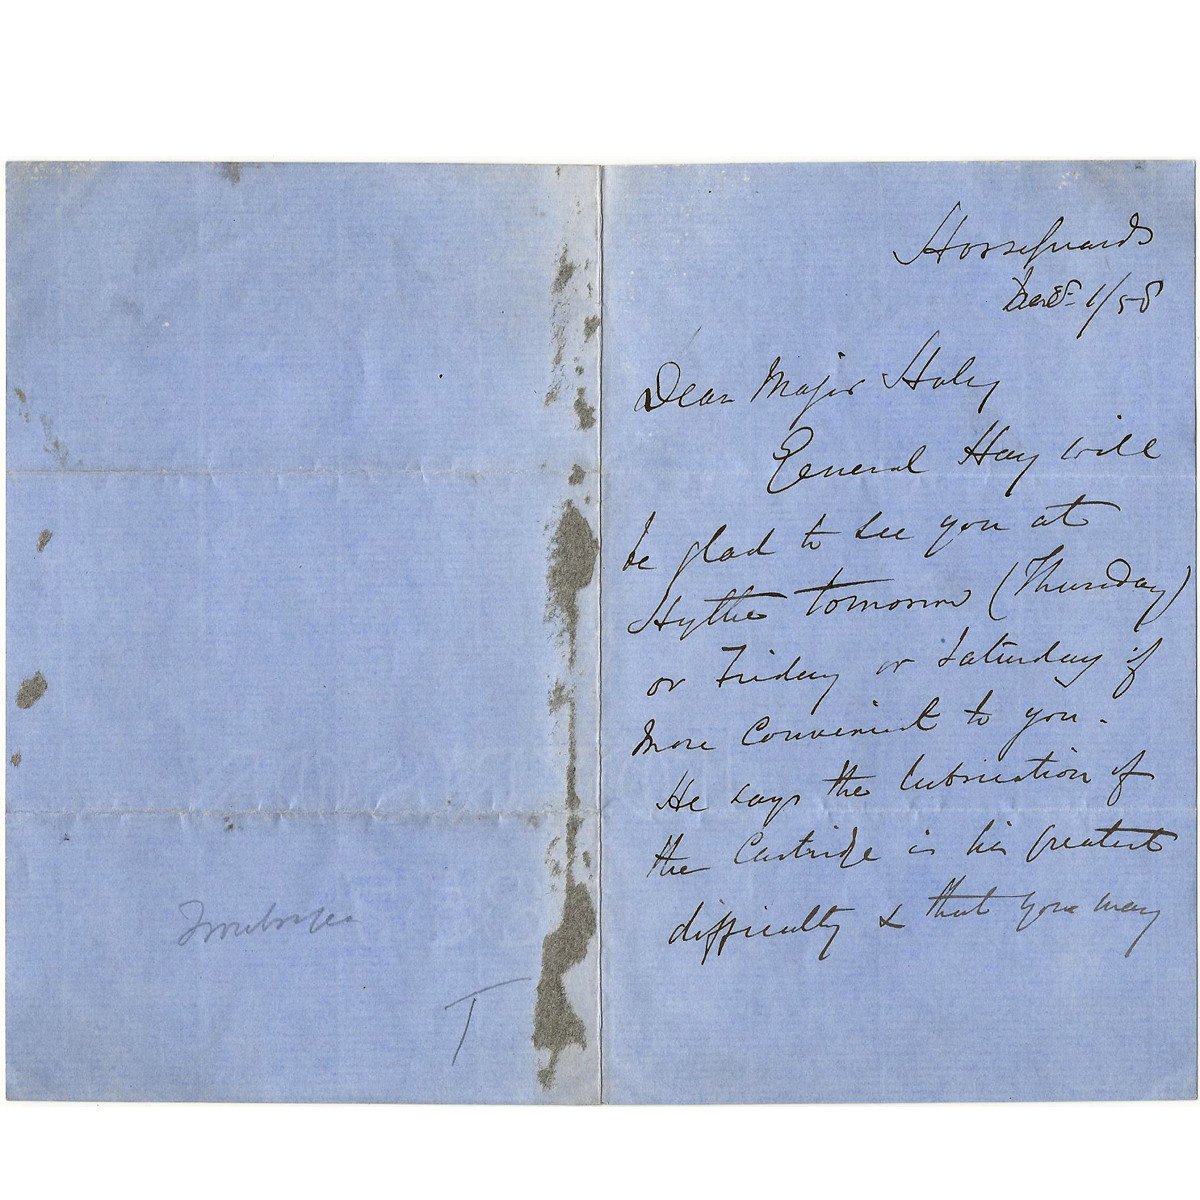 Horseguards
Dec 1/58
Dear Major Haly
General Hay will
be glad to see you at
Hythe tomorrow (Thursday)
or Friday or Saturday if
more convenient to you.
He says the lubrication of
the Cartridge is his greatest
difficulty & that you may
T